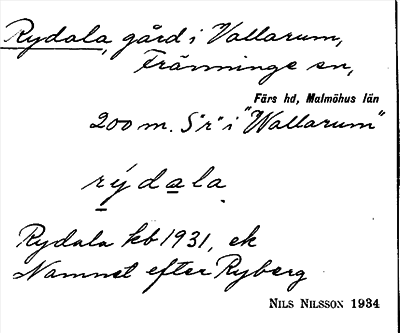 Rydala, gård i Vallarum,
Fränninge sn,
Färs hd, Malmöhus län
200 m. S "r" i "Wallarum"
rýdala.
Rydala kb 1931, ek
Namnet efter Ryberg
NILS NILSSON 1934